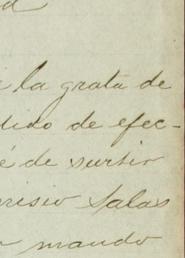 d
la grata de
dido de efec-
é de surtir
cisco Salas
mando